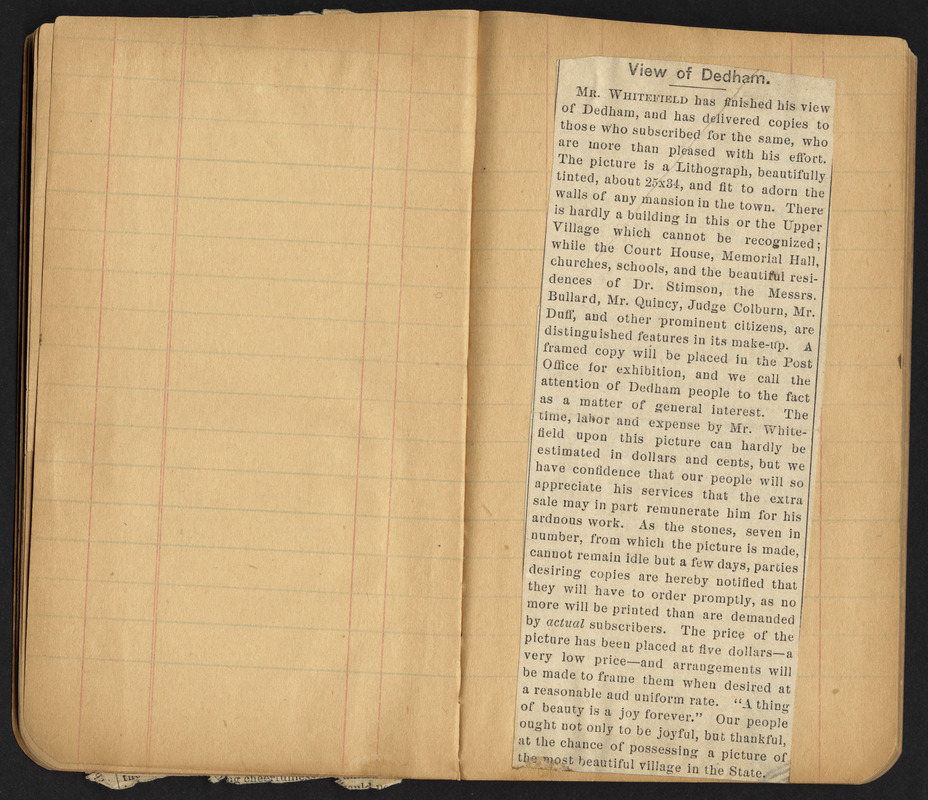 View of Dedham.
MR. WHITEFIELD has finished his view
of Dedham, and has delivered copies to
those who subscribed for the same, who
are more than pleased with his effort.
The picture is a Lithograph, beautifully
tinted, about 25x34, and fit to adorn the
walls of any mansion in the town. There
is hardly a building in this or the Upper
Village which cannot be recognized;
while the Court House, Memorial Hall,
churches, schools, and the beautiful resi-
dences of Dr. Stimson, the Messrs.
Bullard, Mr. Quincy, Judge Colburn, Mr.
Duff, and other prominent citizens, are
distinguished features in its make-up. A
framed copy will be placed in the Post
Office for exhibition, and we call the
attention of Dedham people to the fact
as a matter of general interest. The
time, labor and expense by Mr. White-
field upon this picture can hardly be
estimated in dollars and cents, but we
have confidence that our people will so
appreciate his services that the extra
sale may in part remunerate him for his
ardnous work. As the stones, seven in
number, from which the picture is made,
cannot remain idle but a few days, parties
desiring copies are hereby notified that
they will have to order promptly, as no
more will be printed than are demanded
by actual subscribers. The price of the
picture has been placed at five dollars—a
very low price—and arrangements will
be made to frame them when desired at
a reasonable aud uniform rate. “A thing
of beauty is a joy forever.” Our people
ought not only to be joyful, but thankful,
at the chance of possessing a picture of
the most beautiful village in the State.